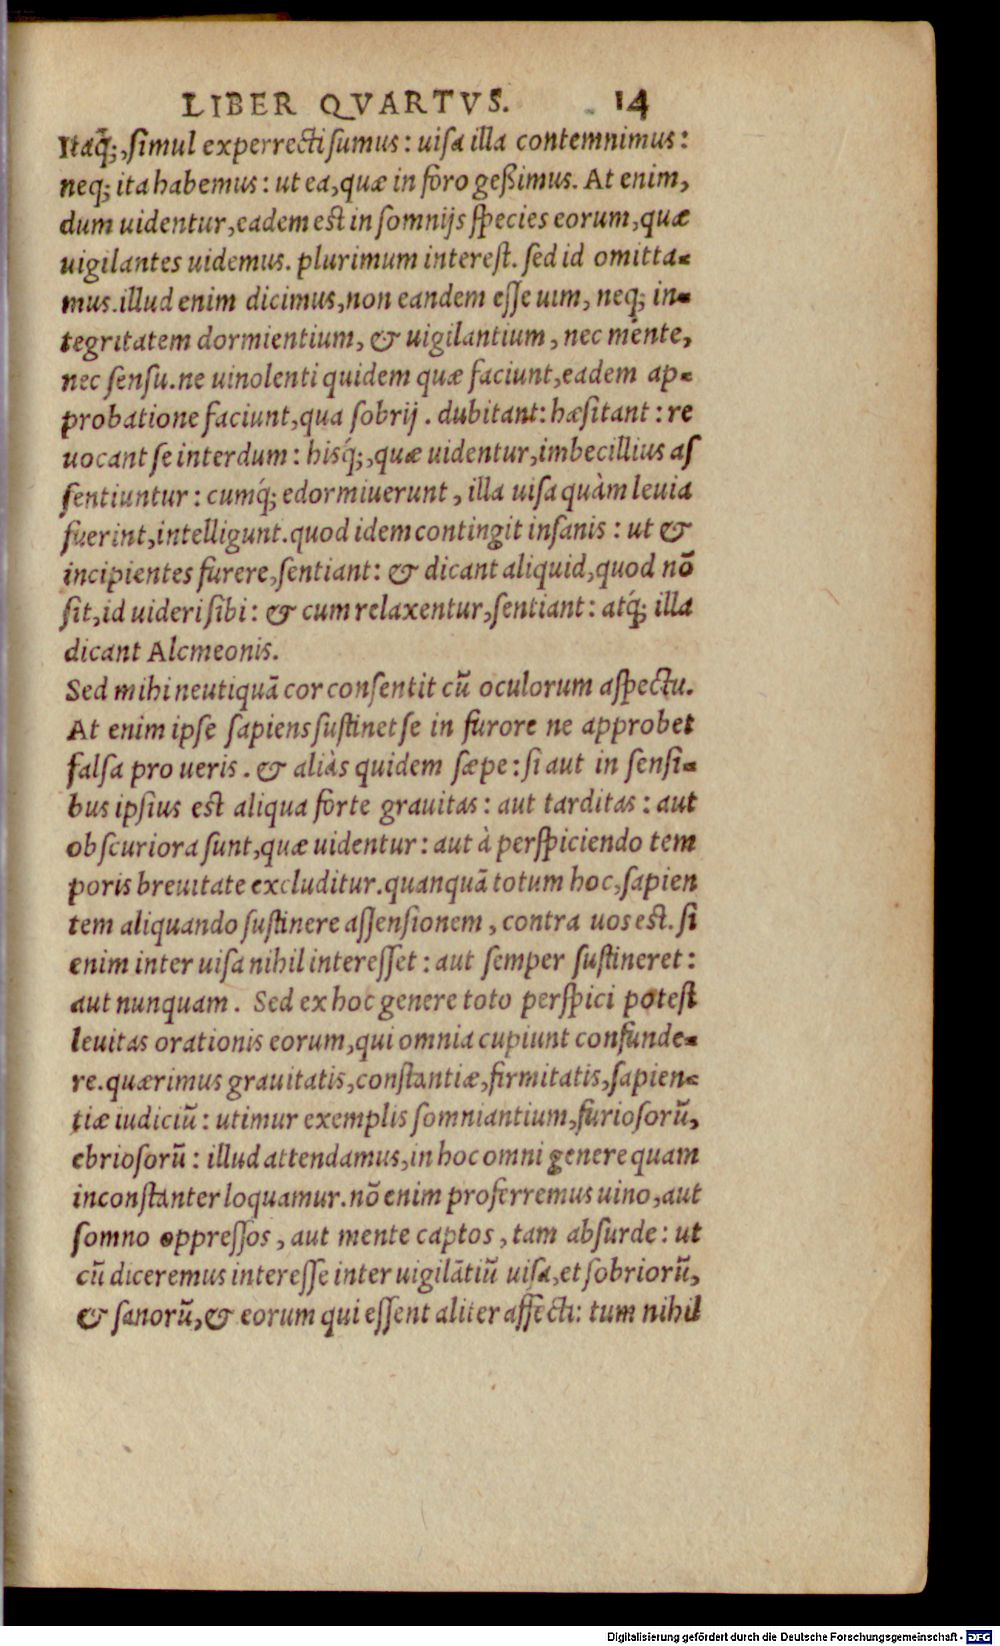 LIBER QVARTVS. 14
Itaq́;, simul experrecti sumus: uisa illa contemnimus:
neq; ita habemus: ut ea, quæ in foro geßimus. At enim,
dum uidentur, eadem est in somnijs species eorum, quæ
uigilantes uidemus. plurimum interest. sed id omitta-
mus. illud enim dicimus, non eandem esse uim, neq; in-
tegritatem dormientium, & uigilantium, nec mente,
nec sensu. ne uinolenti quidem quæ faciunt, eadem ap-
probatione faciunt, qua sobrij. dubitant: hæsitant: re
uocant se interdum: hisq́;, quæ uidentur, imbecillius as
sentiuntur: cumq́; edormiuerunt, illa uisa quàm leuia
fuerint, intelligunt. quod idem contingit insanis: ut &
incipientes furere, sentiant: & dicant aliquid, quod nõ
sit, id uideri sibi: & cum relaxentur, sentiant: atq́; illa
dicant Alcmeonis.
Sed mihi neutiquã cor consentit cũ oculorum aspectu.
At enim ipse sapiens sustinet se in furore ne approbet
falsa pro ueris. & aliàs quidem sæpe: si aut in sensi-
bus ipsius est aliqua forte grauitas: aut tarditas: aut
obscuriora sunt, quæ uidentur: aut à perspiciendo tem
poris breuitate excluditur. quanquã totum hoc, sapien
tem aliquando sustinere assensionem, contra uos est. si
enim inter uisa nihil interesset: aut semper sustineret:
aut nunquam. Sed ex hoc genere toto perspici potest
leuitas orationis eorum, qui omnia cupiunt confunde-
re. quærimus grauitatis, constantiæ, firmitatis, sapien-
tiæ iudiciũ: utimur exemplis somniantium, furiosorũ,
ebriosorũ: illud attendamus, in hoc omni genere quam
inconstanter loquamur. nõ enim proferremus uino, aut
somno oppressos, aut mente captos, tam absurde: ut
cũ diceremus interesse inter uigilãtiũ uisa, et sobriorũ,
& sanorũ, & eorum qui essent aliter affecti: tum nihil
Digitalisierung gefördert durch die Deutsche Forschungsgemeinschaft - DFG